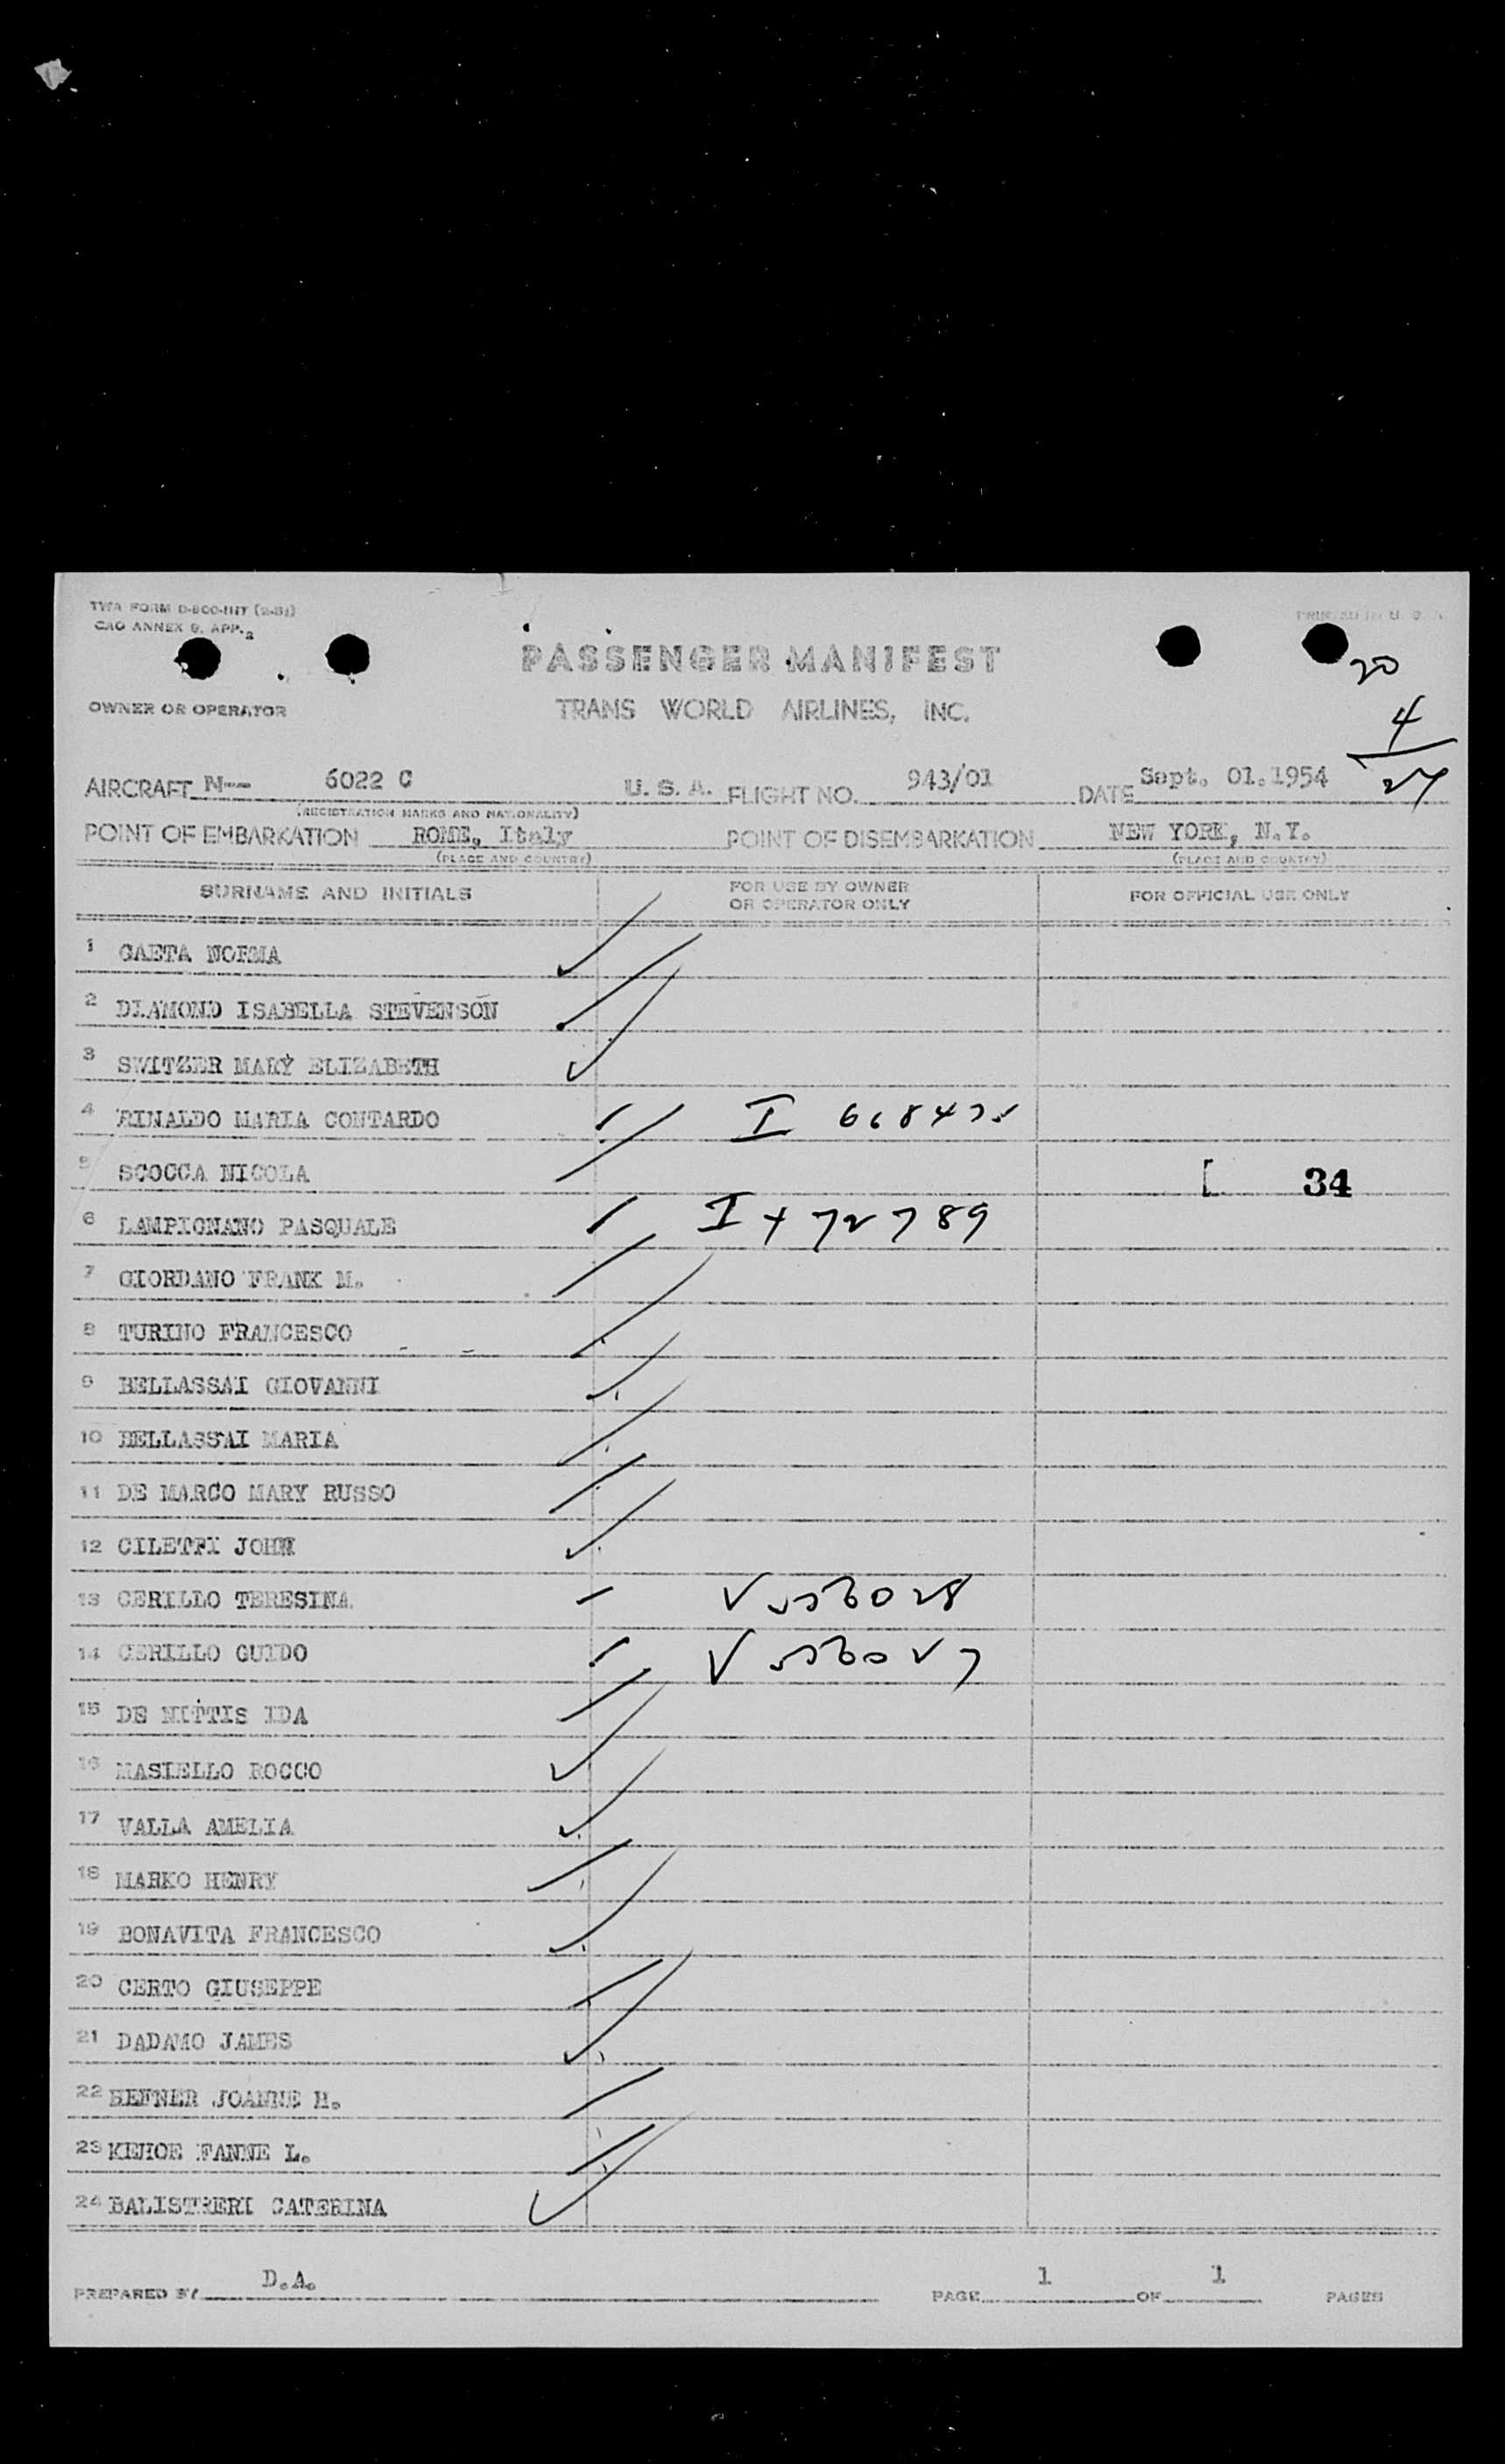 TWA FORM O-800-INT (2-51)
CAO ANNEX 9, APP. 2
PRINTED IN U. S. A.
PASSENGER MANIFEST
20
OWNER OR OPERATOR TRANS WORLD AIRLINES, INC.
4
24
AIRCRAFT N-- 6022 C U. S. A. FLIGHT NO. 943/01 DATE Sept. 01.1954
(REGISTRATION MARKS AND NATIONALITY)
POINT OF EMBARKATION ROME, Italy POINT OF DISEMBARKATION NEW YORK, N.Y.
(PLACE AND COUNTRY) (PLACE AND COUNTRY)
SURNAME AND INITIALS FOR USE BY OWNER OR OPERATOR ONLY FOR OFFICIAL USE ONLY
1 GAETA NORMA
2 DIAMOND ISABELLA STEVENSON
3 SWITZER MARY ELIZABETH
4 RINALDO MARIA CONTARDO I
5 SCOCCA NICOLA [ 34
6 LAMPIGNANO PASQUALE I
7 GIORDANO FRANK M.
8 TURINO FRANCESCO
9 BELLASSAI GIOVANNI
10 BELLASSAI MARIA
11 DE MARCO MARY RUSSO
12 JOHN
13 CERILLO TERESINA
14 CERILLO GUIDO
15 DE IDA
16 MASIELLO ROCCO
17 VALLA AMELIA
18 MARKO HENRY
19 BONAVITA FRANCESCO
20 CERTO GIUSEPPE
21 DADAMO JAMES
22 HEFNER JOANNE H.
23 KEHOE FANNE L.
24 BALISTRERI CATERINA
PREPARED BY D.A. PAGE 1 OF 1 PAGES